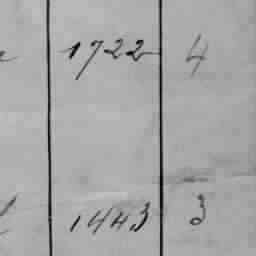 1722 4
1443 3